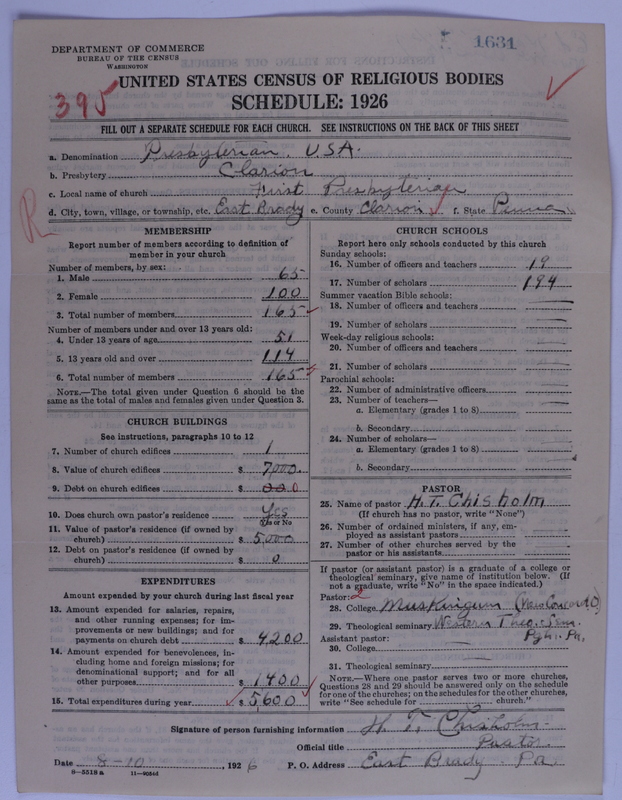 1631
DEPARTMENT OF COMMERCE
BUREAU OF THE CENSUS
WASHINGTON
395
UNITED STATES CENSUS OF RELIGIOUS BODIES
SCHEDULE: 1926
FILL OUT A SEPARATE SCHEDULE FOR EACH CHURCH. SEE INSTRUCTIONS ON THE BACK OF THIS SHEET
a. Denomination Presbyterian, U.S.A.
b. Presbytery Clarion
c. Local name of church First Presbyterian
R
d. City, town, village, or township, etc. East Brady e. County Clarion f. State Penna
MEMBERSHIP
Report number of members according to definition of
member in your church
Number of members, by sex:
1. Male 65
2. Female 100
3. Total number of members 165
Number of members under and over 13 years old:
4. Under 13 years of age 51
5. 13 years old and over 114
6. Total number of members 165
NOTE.—The total given under Question 6 should be
same as the total of males and females given under Question 3.
CHURCH BUILDINGS
See instructions, paragraphs 10 to 12
7. Number of church edifices 1
8. Value of church edifices $ 7,000
9. Debt on church edifices $ 000
10. Does church own pastor's residence Yes
Yes or No
11. Value of pastor's residence (if owned by
church) $ 5,000
12. Debt on pastor's residence (if owned by
church) $ 0
EXPENDITURES
Amount expended by your church during last fiscal year
13. Amount expended for salaries, repairs,
and other running expenses; for im-
provements or new buildings; and for
payments on church debt $ 4200
14. Amount expended for benevolences, in-
cluding home and foreign missions; for
denominational support; and for all
other purposes $ 1400
15. Total expenditures during year $ 5,600
CHURCH SCHOOLS
Report here only schools conducted by this church
Sunday schools:
16. Number of officers and teachers 19
17. Number of scholars 194
Summer vacation Bible schools:
18. Number of officers and teachers
19. Number of scholars
Week-day religious schools:
20. Number of officers and teachers
21. Number of scholars
Parochial schools:
22. Number of administrative officers
23. Number of teachers—
a. Elementary (grades 1 to 8)
b. Secondary
24. Number of scholars—
a. Elementary (grades 1 to 8)
b. Secondary
PASTOR
25. Name of pastor H. T. Chisholm
(If church has no pastor, write "None")
26. Number of ordained ministers, if any, em-
ployed as assistant pastors
27. Number of other churches served by the
pastor or his assistants
If pastor (or assistant pastor) is a graduate of a college or
theological seminary, give name of institution below. (If
not a graduate, write "No" in the space indicated.)
Pastor: 2
28. College Muskingum (New Concord O)
29. Theological seminary Western Theo. Sem.
Pgh. Pa.
Assistant pastor:
30. College
31. Theological seminary
NOTE.—Where one pastor serves two or more churches,
Questions 28 and 29 should be answered only on the schedule
for one of the churches; on the schedules for the other churches,
write "See schedule for church."
Signature of person furnishing information H. T. Chisholm
Official title Pastor
Date 8-10, 1926 P. O. Address East Brady Pa
8—5518 a 11—9034d